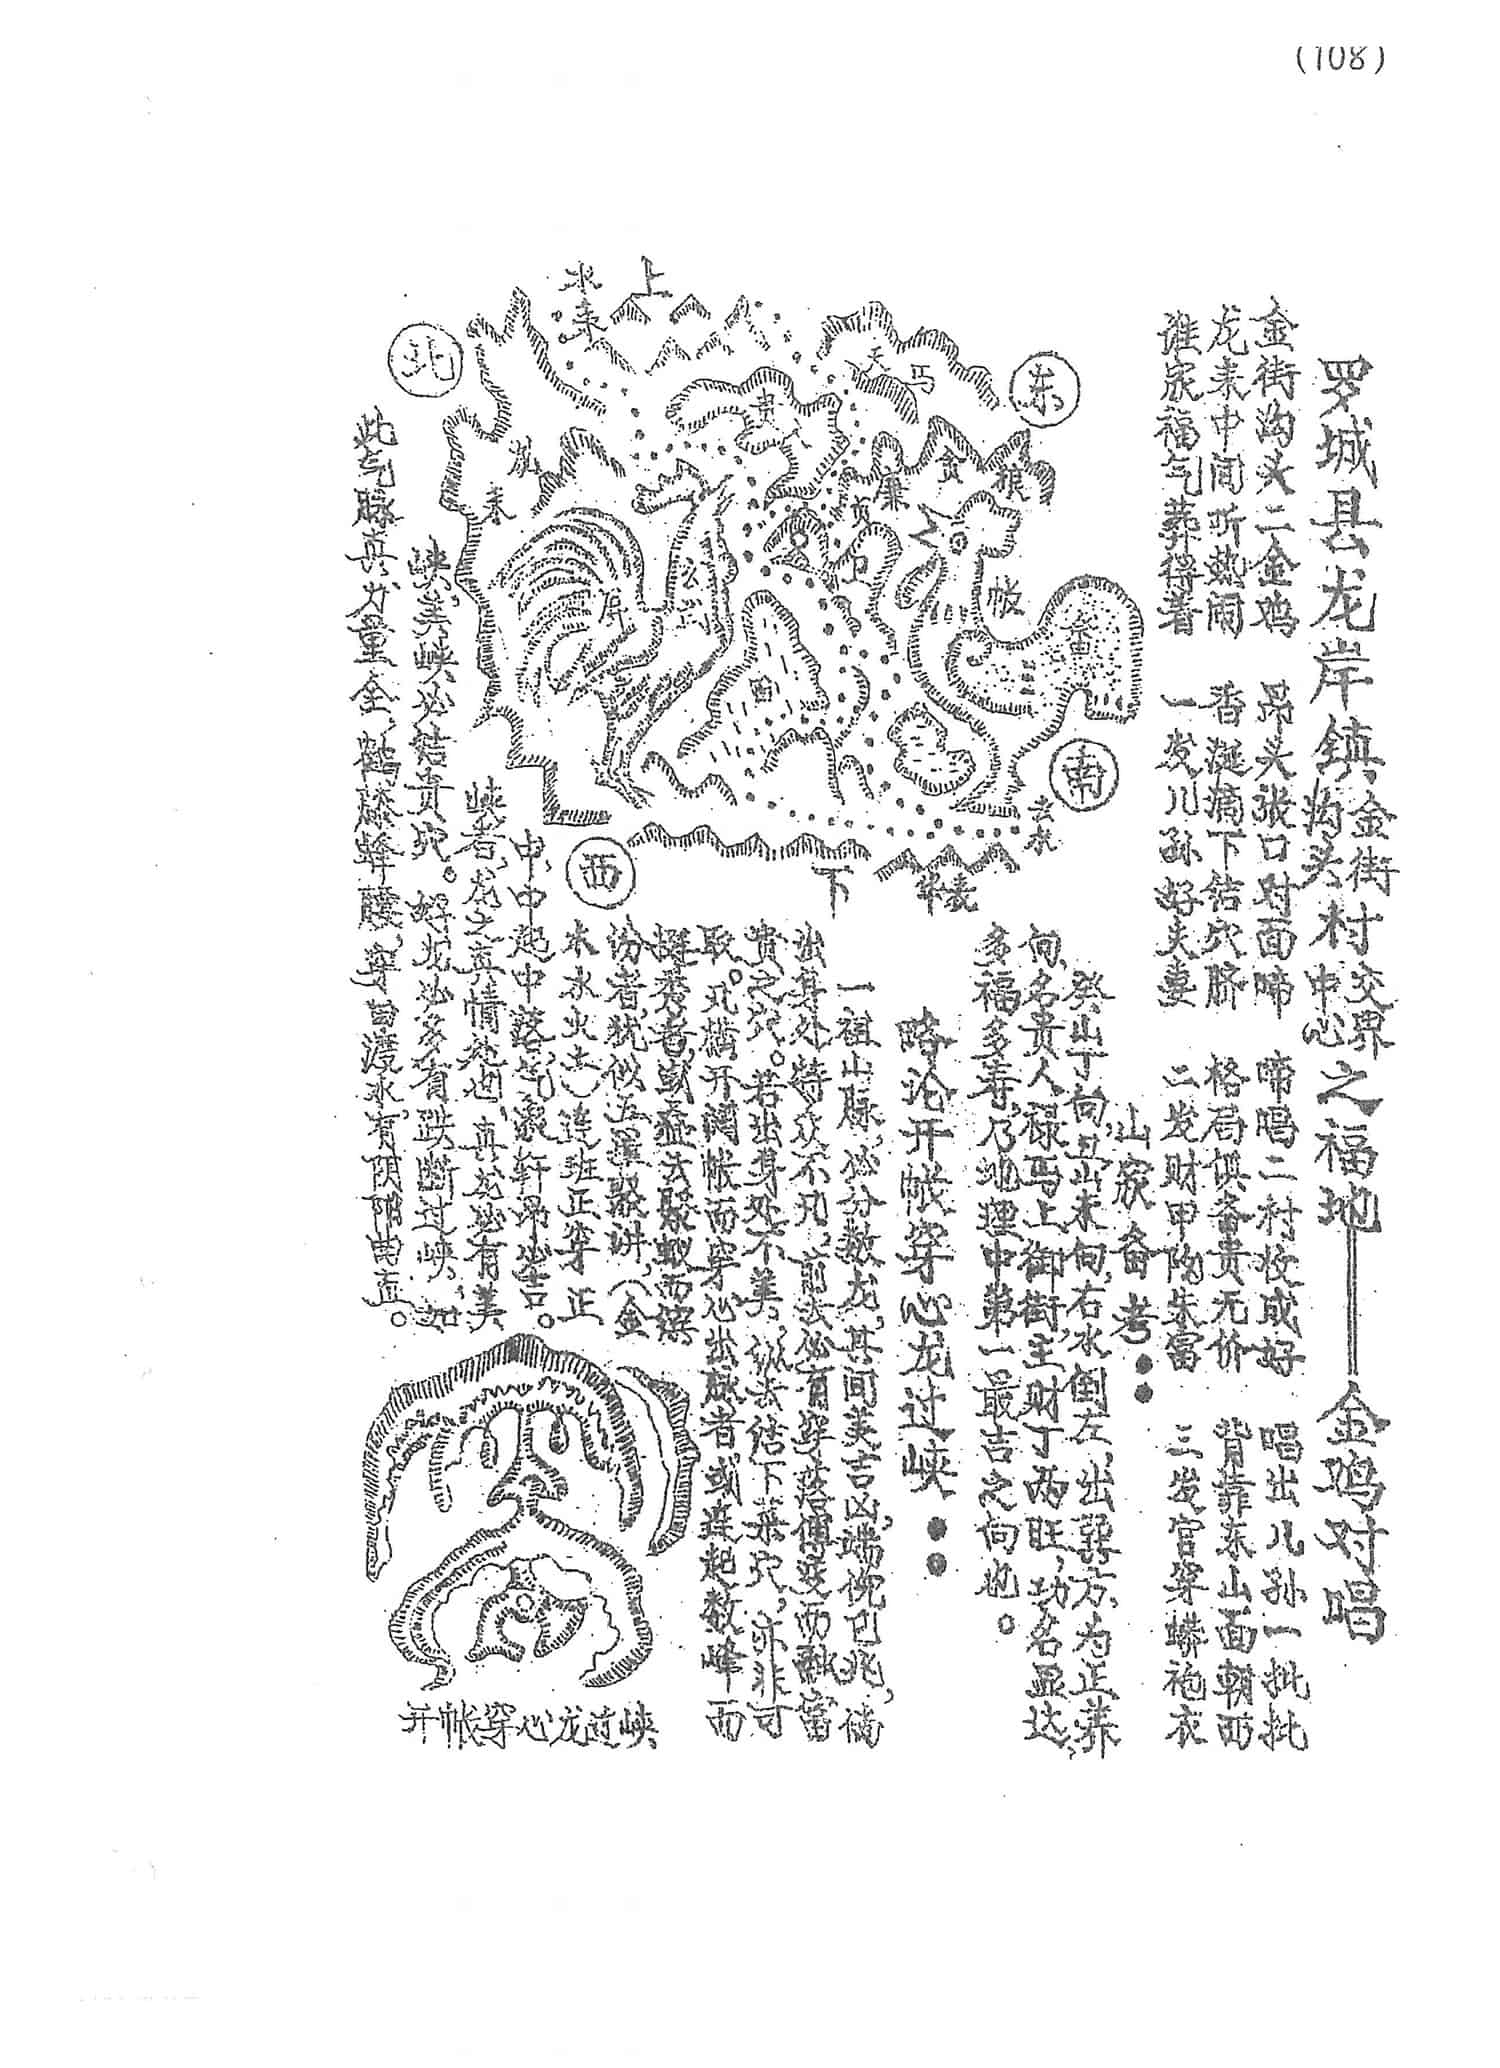 (108)
罗城县龙岸镇金街村沟头村交界中心之福地——金鸡对唱
金街沟头二金鸡 昂头张口对面啼 啼唱二村收成好 唱出儿孙一批批
龙来中间听热闹 香涎滴下结穴脐 格局俱备贵无价 背靠东山面朝西
谁家福气葬得着 一发儿孙好夫妻 二发财甲陶朱富 三发官穿蟒袍衣
山家备考：
癸山丁向丑山未向，右水倒左，出巽方，为正养
向，名贵人禄马上御街，主财丁两旺，功名显达，
多福多寿，乃地理中第一最吉之向也。
略论开帐穿心龙过峡：
一祖山脉，必分数龙，其间美吉凶，端倪已兆，倘
出身处特众不凡，前去必有穿落传变而融富
贵之穴。若出身处不美，纵去结下菜穴，亦非可
取。凡横开阔帐而穿心出脉者，或连起数峰而
挺秀者，或叠去骏蚁而缤
纷者，犹似五星聚讲，（金
木水火土）连班正穿正
中，中起中落，气象轩昂必吉。
峡者，龙之真情处也，真龙必有美
峡，美峡必结贵穴。好龙必多有跌断过峡，如
此气脉真力量全，鹤膝蜂腰，穿田渡水，有阴阳曲直。
上
水来
北
东
天马
贵人
贪狼
廉贞
卫
帐
屏
南
去水
西
下
华表
开帐穿心龙过峡